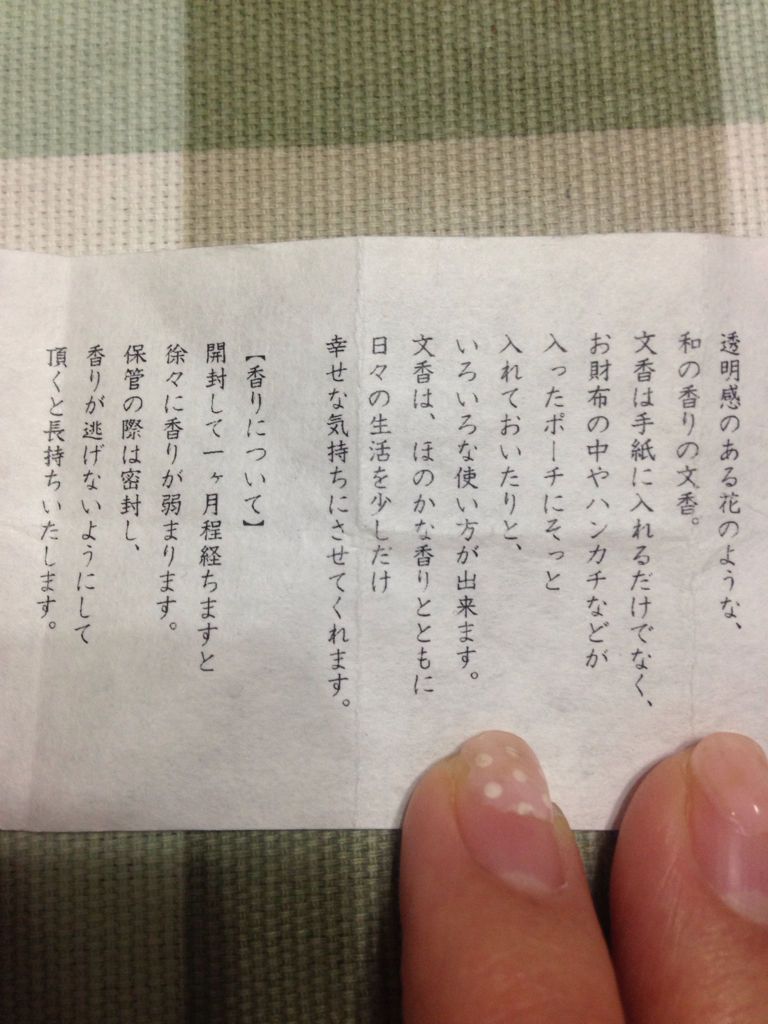 透明感のある花のような、
和の香りの文香。
文香は手紙に入れるだけでなく、
お財布の中やハンカチなどが
入ったポーチにそっと
入れておいたりと、
いろいろな使い方が出来ます。
文香は、ほのかな香りとともに
日々の生活を少しだけ
幸せな気持ちにさせてくれます。
【香りについて】
開封して一ヶ月程経ちますと
徐々に香りが弱まります。
保管の際は密封し、
香りが逃げないようにして
頂くと長持ちいたします。